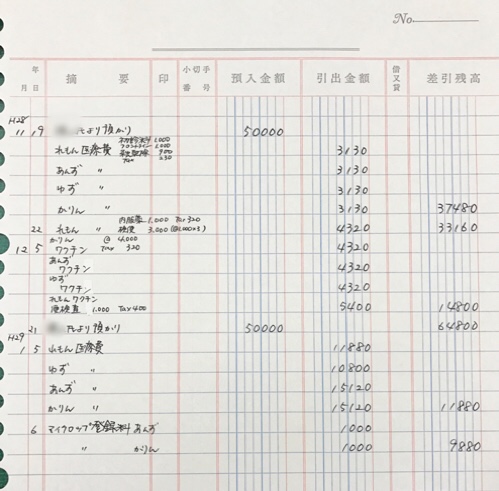 No.
年
月 日 摘 要 印 小切手番号 預入金額 引出金額 借又貸 差引残高
H28
11 19 より預かり 50000
れもん 医療費 1,000 1,000 900 Tax 230 3130
あんず 〃 3130
ゆず 〃 3130
かりん 〃 3130 37480
内服薬 1,000 Tax 320
22 れもん 〃 検便 3,000 (@1,000×3) 4320 33160
かりん @ 4,000
12 5 ワクチン Tax 320 4320
あんず
ワクチン 4320
ゆず
ワクチン 4320
れもん ワクチン
1,000 Tax 400 5400 14800
21 より預かり 50000 64800
H29
1 5 れもん 医療費 11880
ゆず 〃 10800
あんず 〃 15120
かりん 〃 15120 11880
6 マイクロップ登録料 あんず 1000
〃 かりん 1000 9880